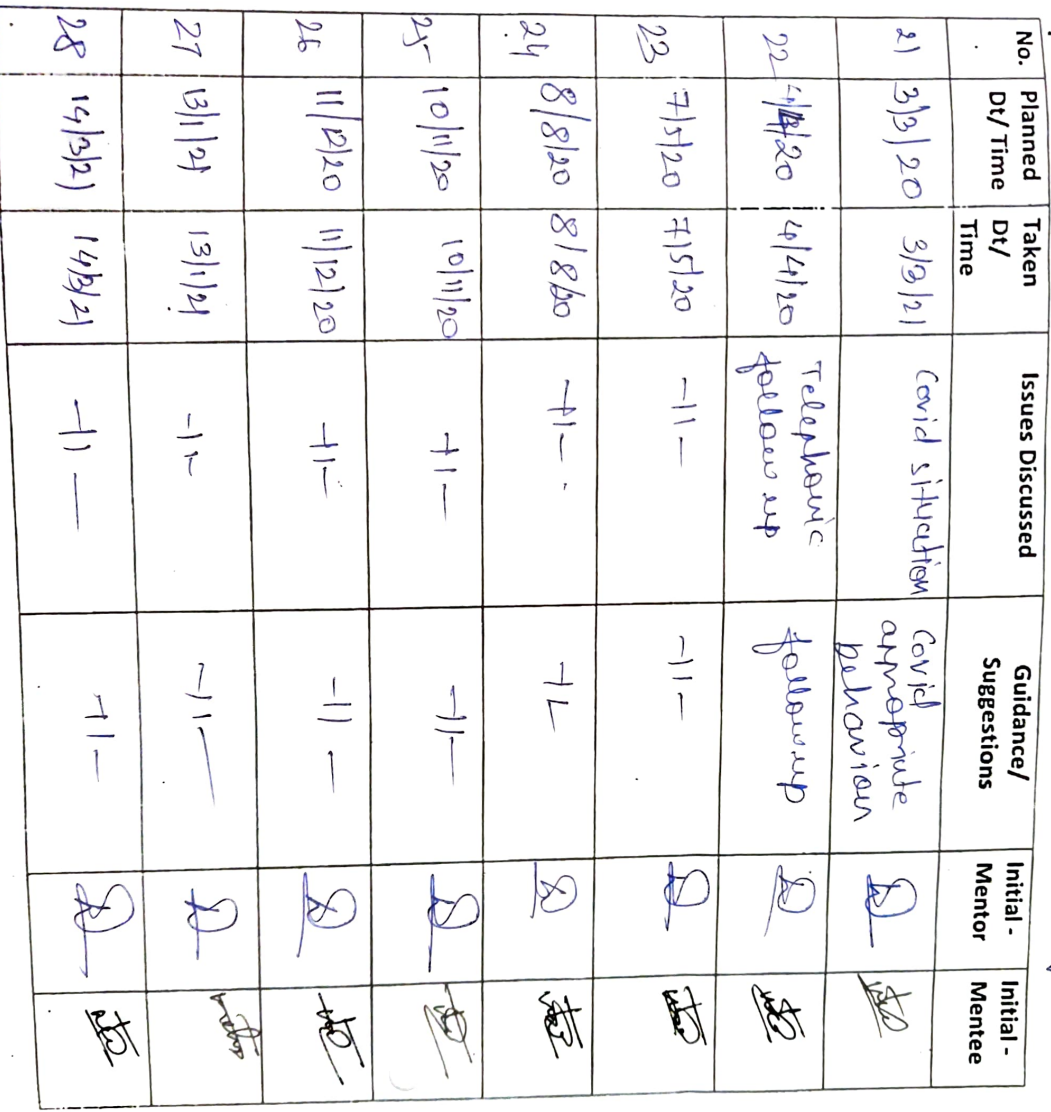 No. Planned Dt/ Time Taken Dt/ Time Issues Discussed Guidance/ Suggestions Initial - Mentor Initial - Mentee
21 3/3/20 3/3/21 Covid situation Covid appropriate behaviour
22 4/4/20 4/4/20 Telephonic follow up follow up
23 7/5/20 7/5/20 -11- -11-
24 8/8/20 8/8/20 -11- -11-
25 10/11/20 10/11/20 -11- -11-
26 11/12/20 11/12/20 -11- -11-
27 13/1/21 13/1/21 -11- -11-
28 14/3/21 14/3/21 -11- -11-